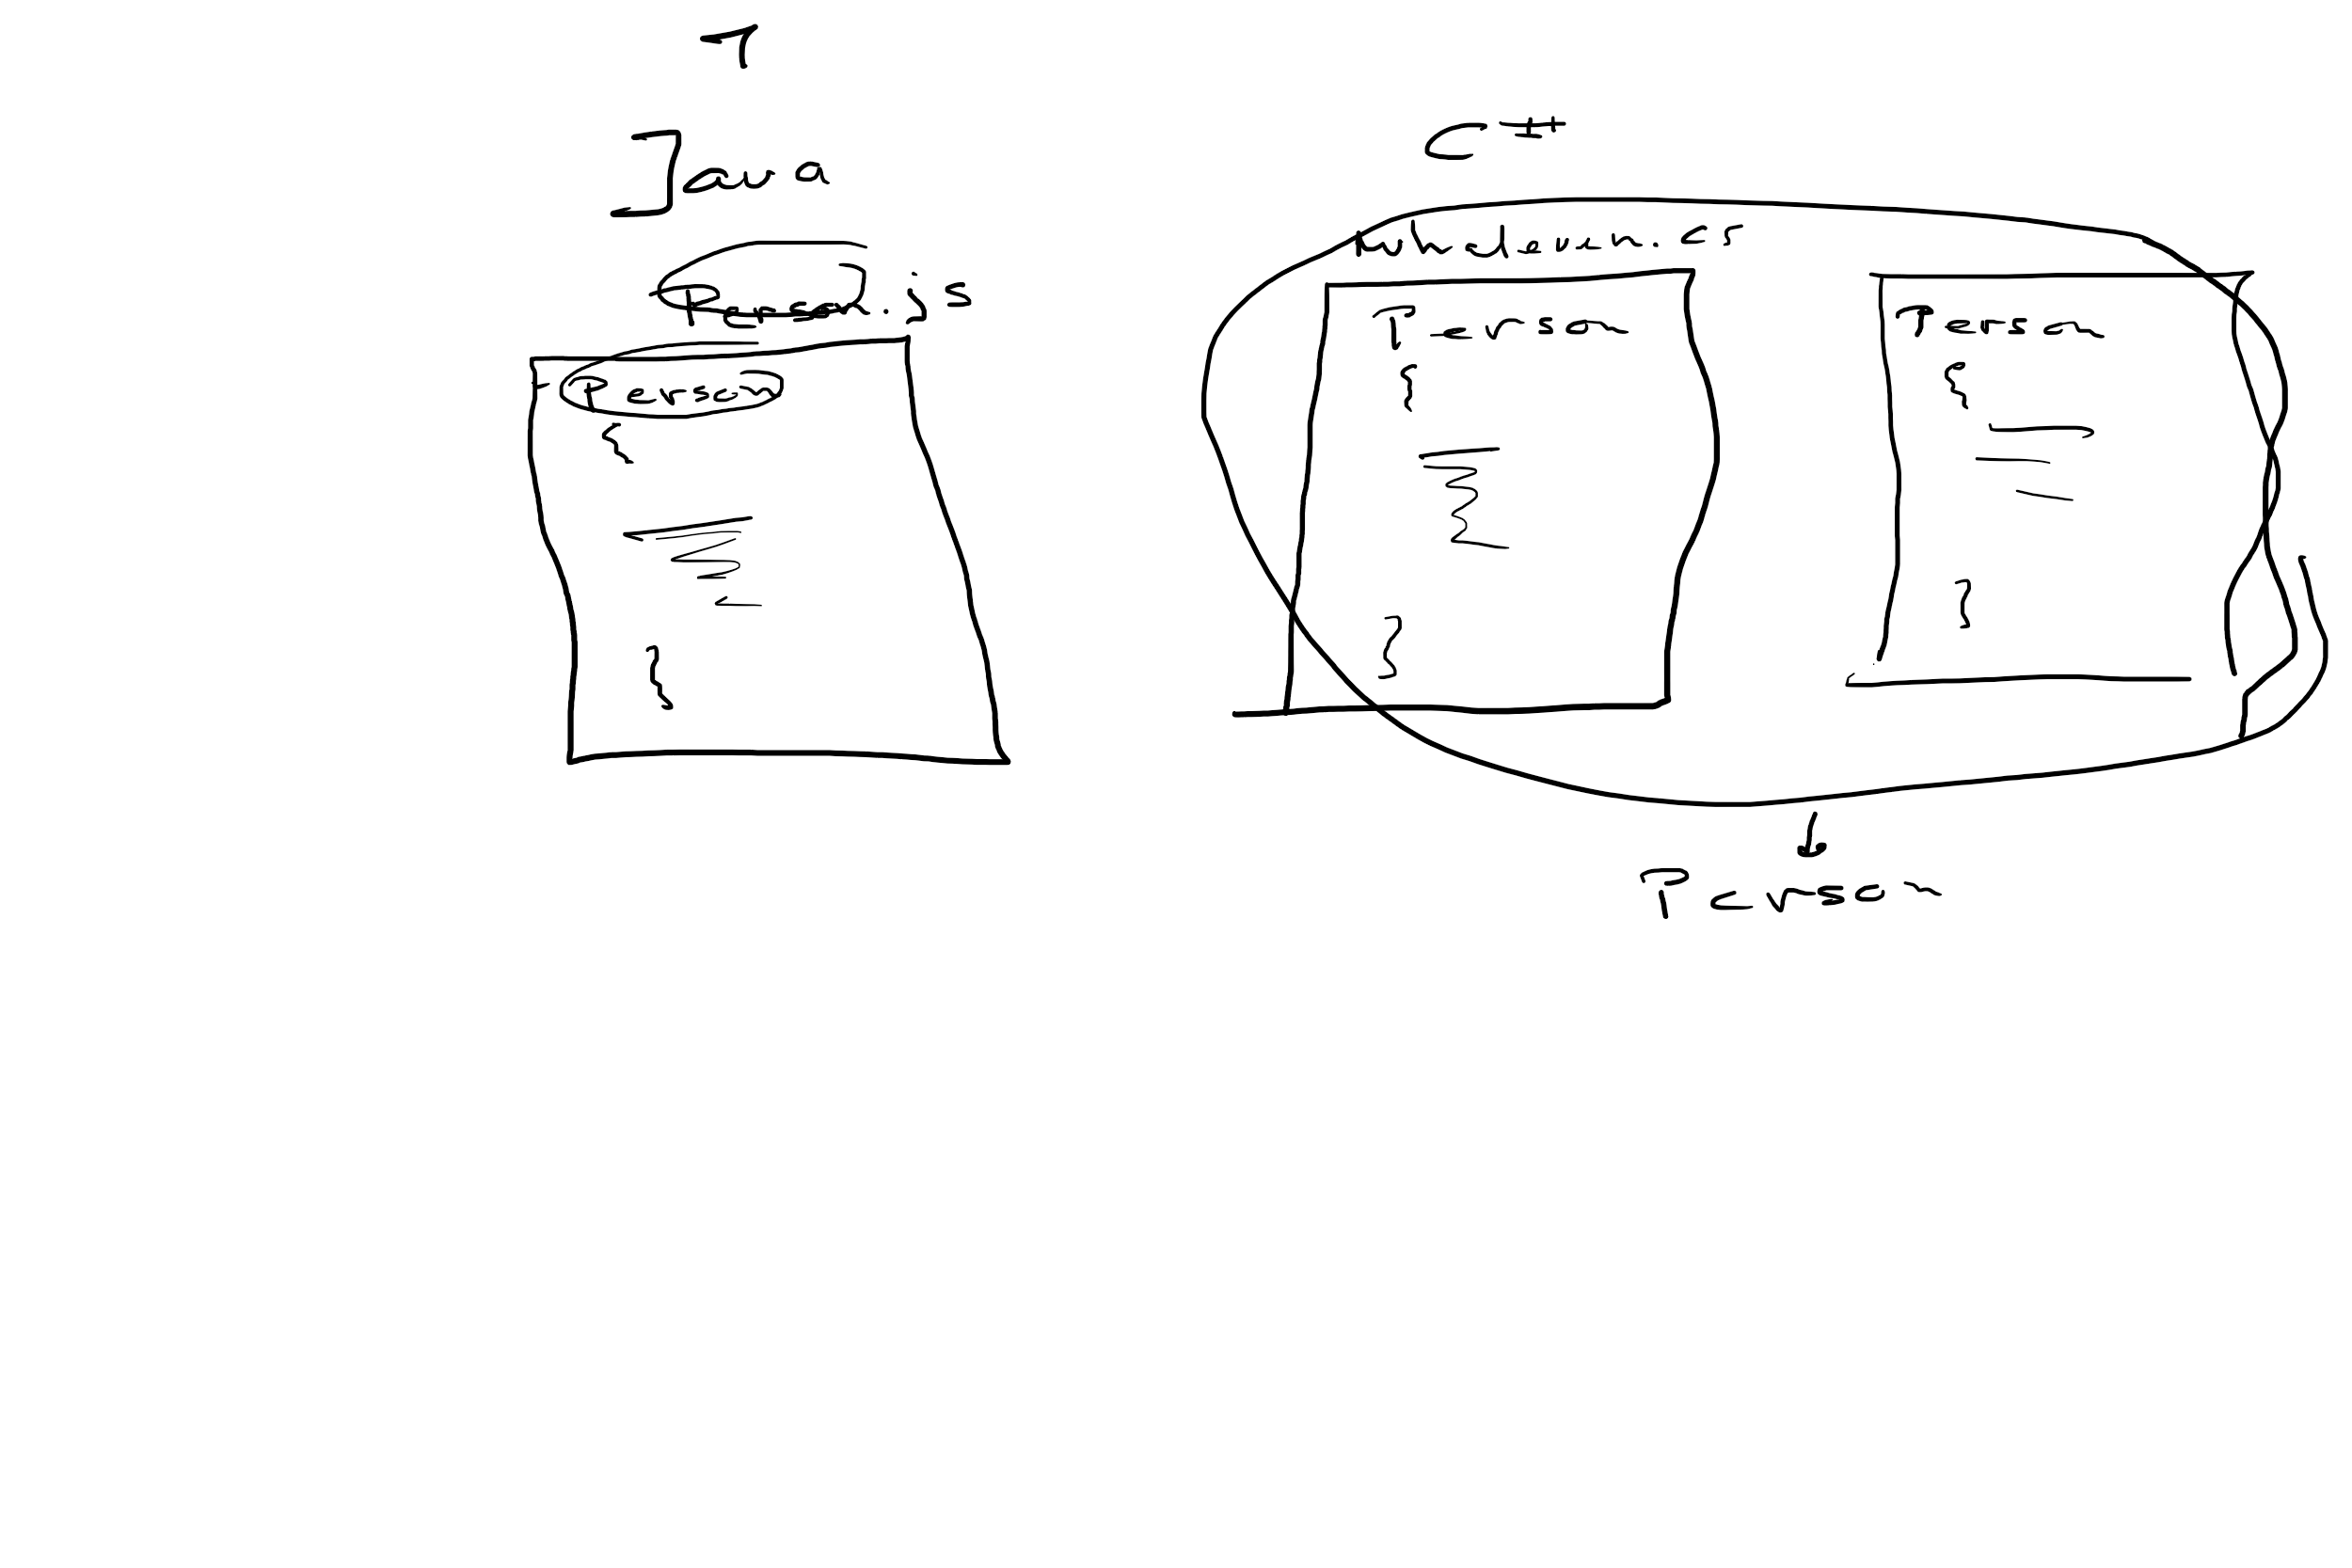 Java
Person.js
Person
{
}
C#
unknown.cs
Person
{
}
Person
{
}
Person